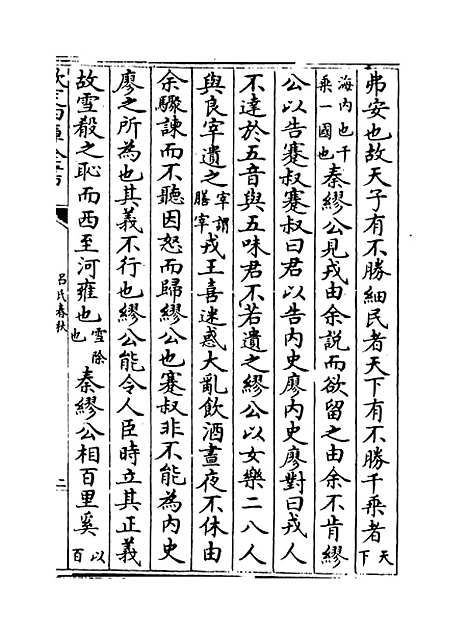 弗安也故天子有不勝細民者天下有不勝千乘者天下
海内也千乘一國也秦繆公見戎由余說而欲留之由余不肯繆
公以告蹇叔蹇叔曰君以告内史廖内史廖對曰戎人
不達於五音與五味君不若遺之繆公以女樂二八人
與良宰遺之宰謂膳宰戎王喜迷惑大亂飲酒晝夜不休由
余驟諫而不聽因怒而歸繆公也蹇叔非不能為内史
廖之所為也其義不行也繆公能令人臣時立其正義
故雪殽之恥而西至河雍也雪除也秦繆公相百里奚以百
欽定四庫全書
呂氏春秋
二